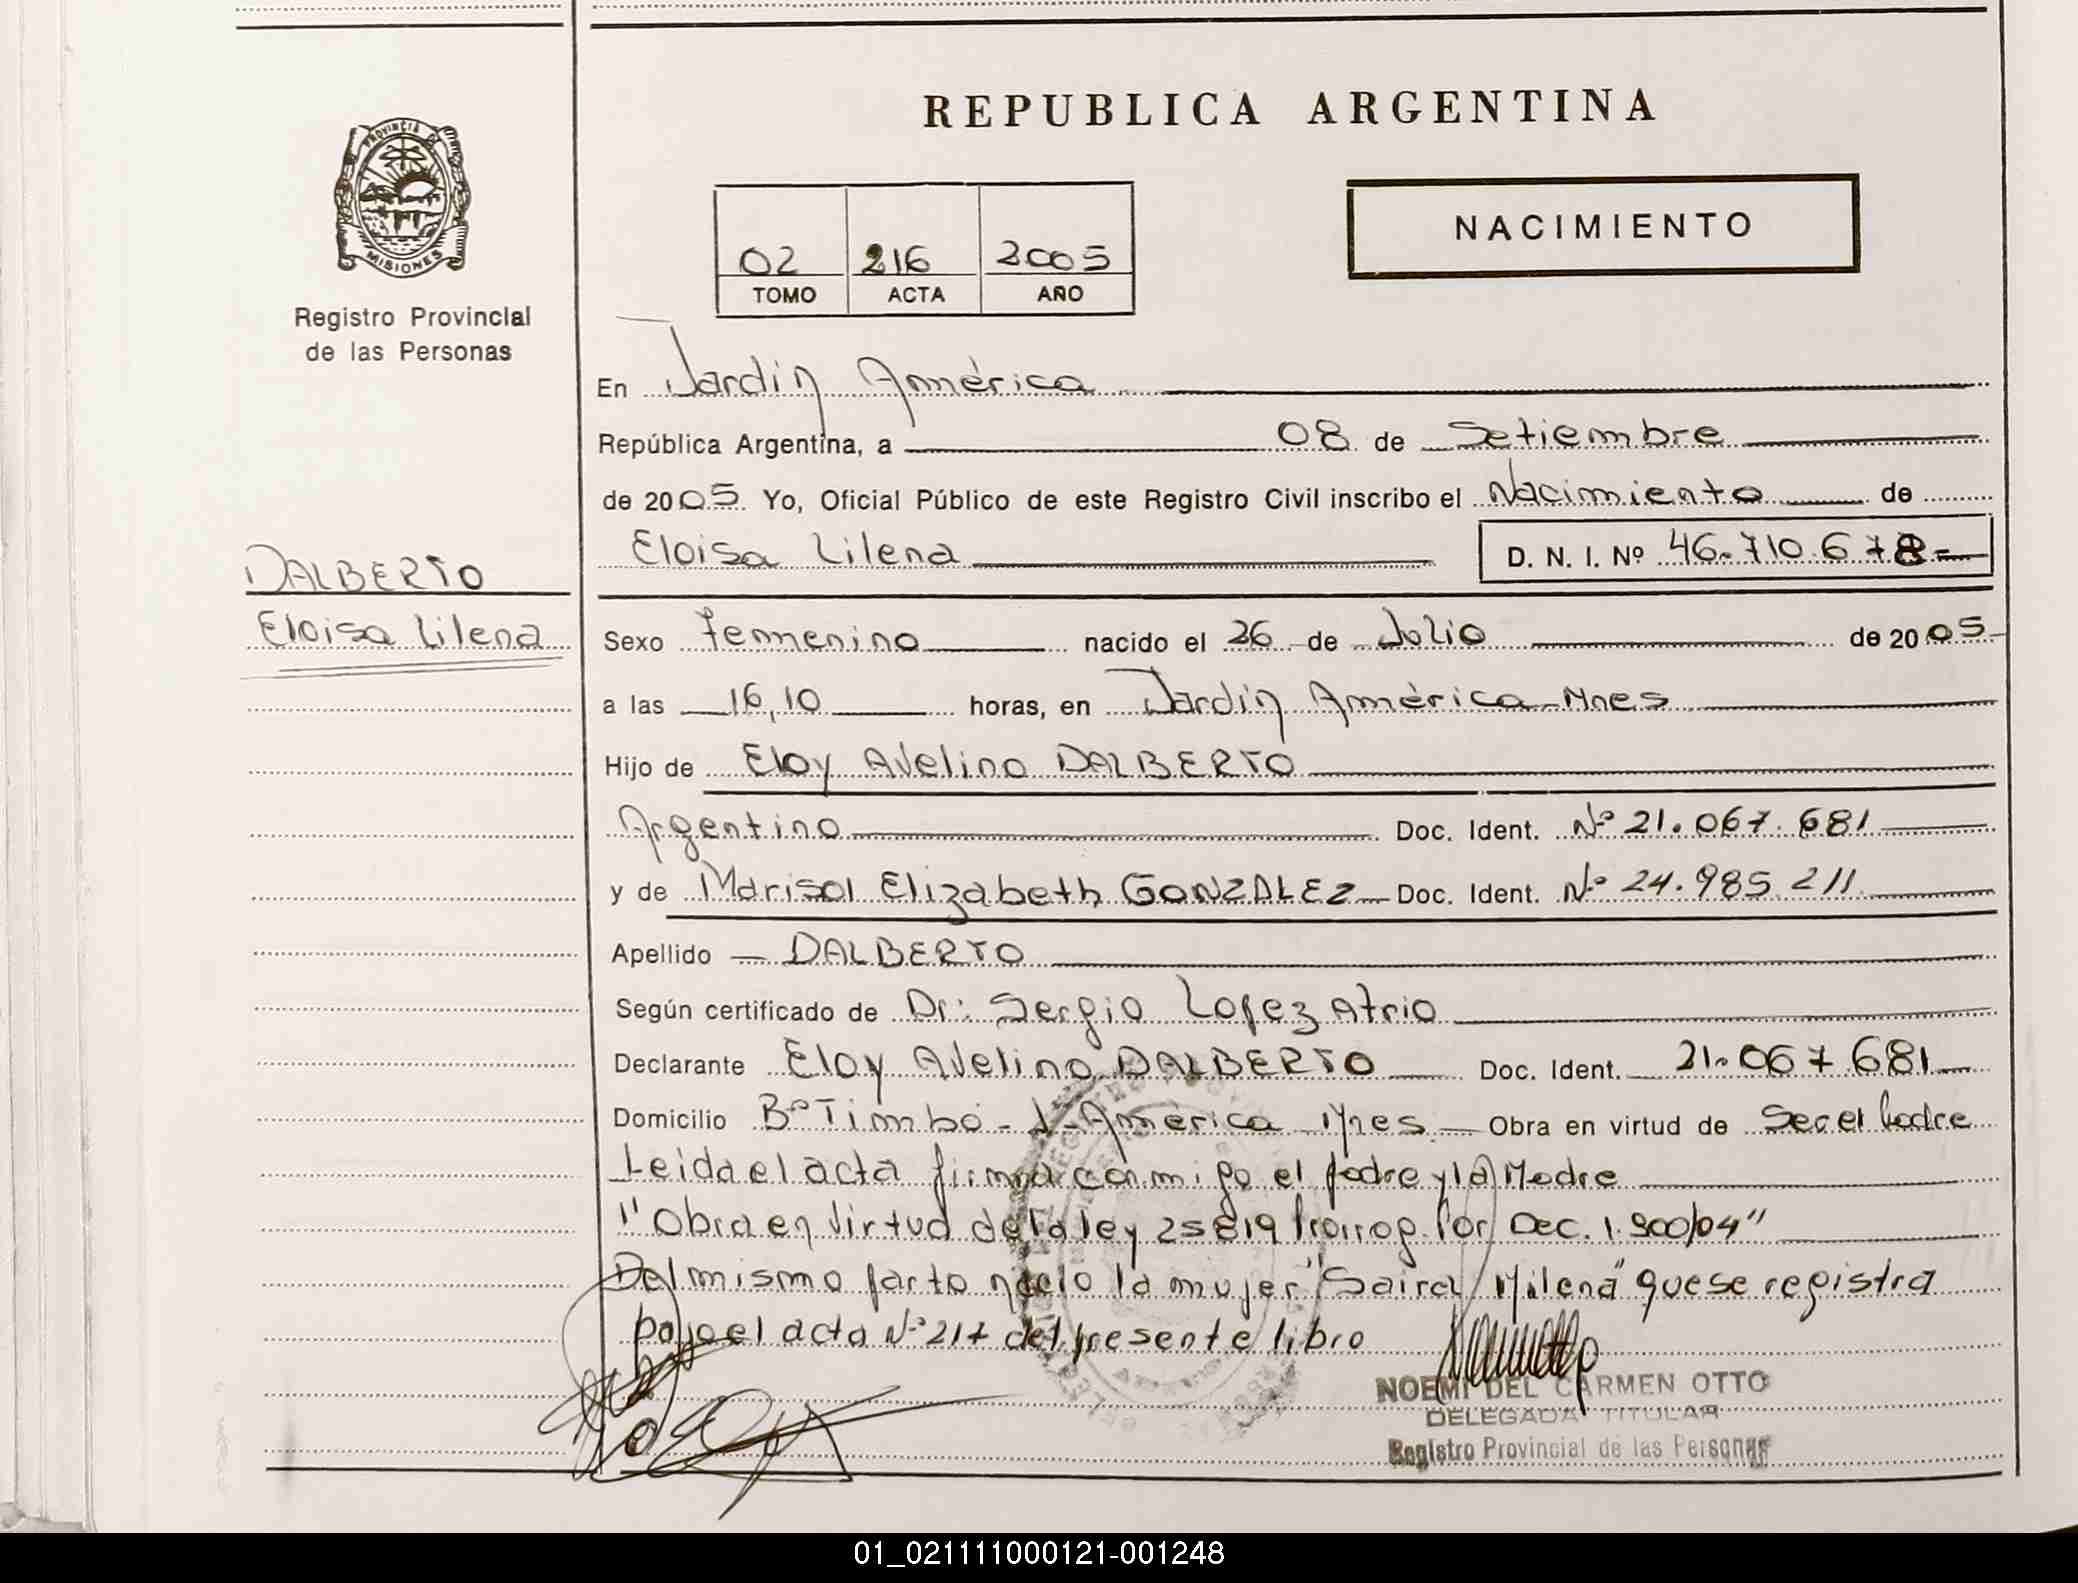 REPUBLICA ARGENTINA
PROVINCIA DE MISIONES
Registro Provincial
de las Personas
02 216 2005
TOMO ACTA AÑO
NACIMIENTO
En Jardín América
República Argentina, a 08 de Setiembre
de 2005. Yo, Oficial Público de este Registro Civil inscribo el Nacimiento de
Eloisa Lilena D. N. I. Nº 46.710.678=
DALBERTO
Eloisa Lilena
Sexo Femenino nacido el 26 de Julio de 2005
a las 16,10 horas, en Jardín América-Mnes
Hijo de Eloy Avelino DALBERTO
Argentino Doc. Ident. Nº 21.067.681
y de Marisol Elizabeth GONZALEZ Doc. Ident. Nº 24.985.211
Apellido DALBERTO
Según certificado de Dr: Sergio Lopez Atrio
Declarante Eloy Avelino DALBERTO Doc. Ident. 21.067.681
Domicilio Bº Timbó - J-América Mnes Obra en virtud de Ser el Padre
Leida el acta firma conmigo el padre y la Madre
"Obra en Virtud de la ley 25819 Prorrog. Por Dec. 1.900/04"
Del mismo parto nacio la mujer "Saira Milena" que se registra
bajo el acta Nº 217 del presente libro
NOEMI DEL CARMEN OTTO
DELEGADA TITULAR
Registro Provincial de las Personas
01_021111000121-001248